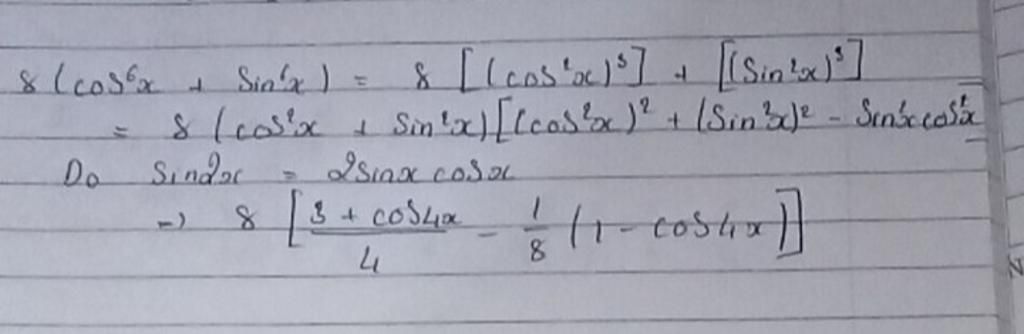 8 (cos⁶x + Sin⁶x) = 8 [(cos²x)³] + [(Sin²x)³]
= 8 (cos²x + Sin²x) [(cos²x)² + (Sin²x)² - Sin²x cos²x
Do Sin2x = 2sinx cosx
→ 8 [ (3 + cos4x)/4 - 1/8 (1 - cos4x)]
N